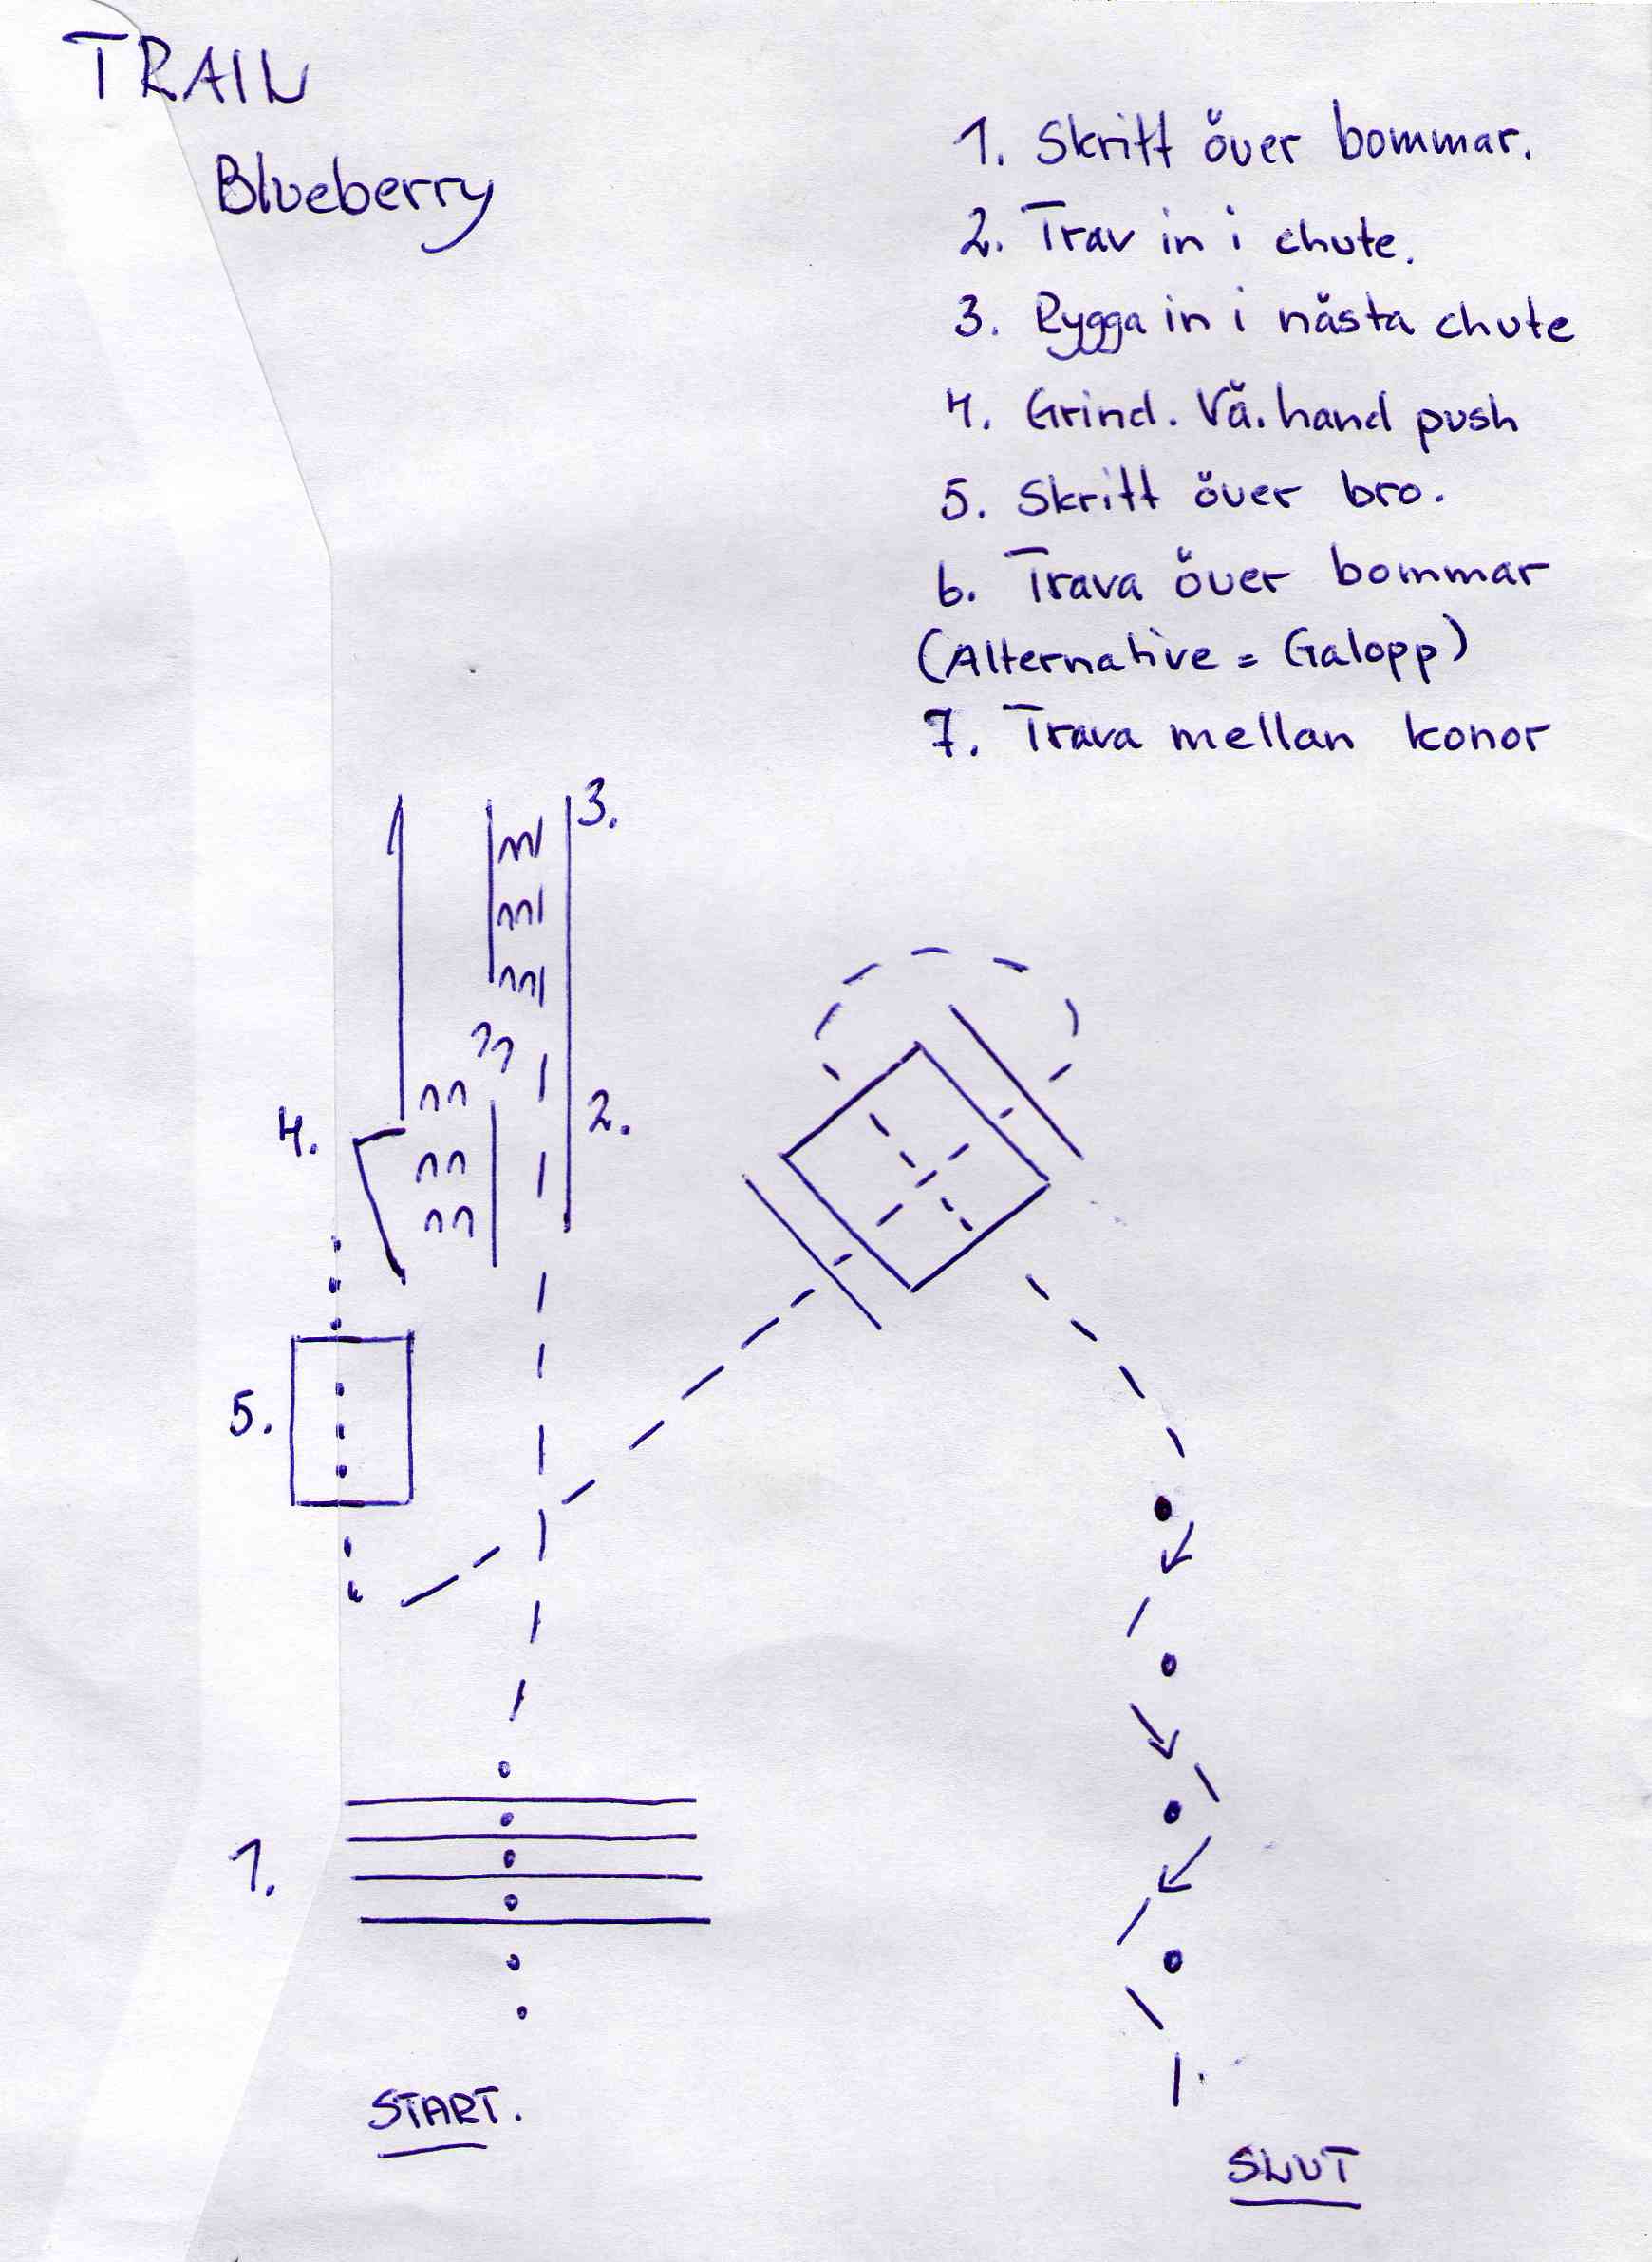 TRAIL
Blueberry
1. Skritt över bommar.
2. Trav in i chute.
3. Rygga in i nästa chute
4. Grind. Vä. hand push
5. Skritt över bro.
6. Trava över bommar
(Alternative = Galopp)
7. Trava mellan konor
3.
2.
4.
5.
1.
START.
SLUT